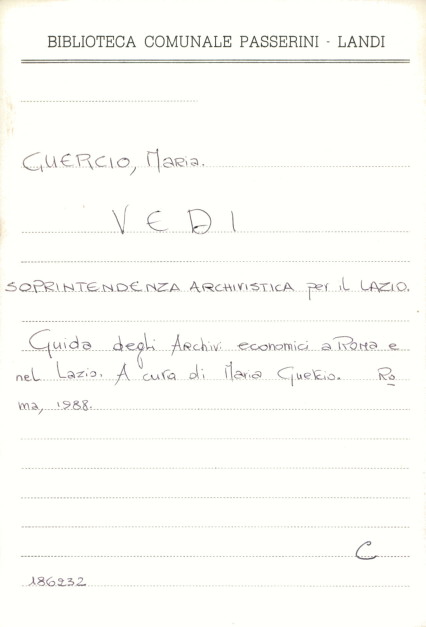 BIBLIOTECA COMUNALE PASSERINI - LANDI
GUERCIO, Maria.
VEDI
SOPRINTENDENZA ARCHIVISTICA per il LAZIO.
Guida degli Archivi economici a Roma e
nel Lazio. A cura di Maria Guercio. Ro
ma, 1988.
C
186232